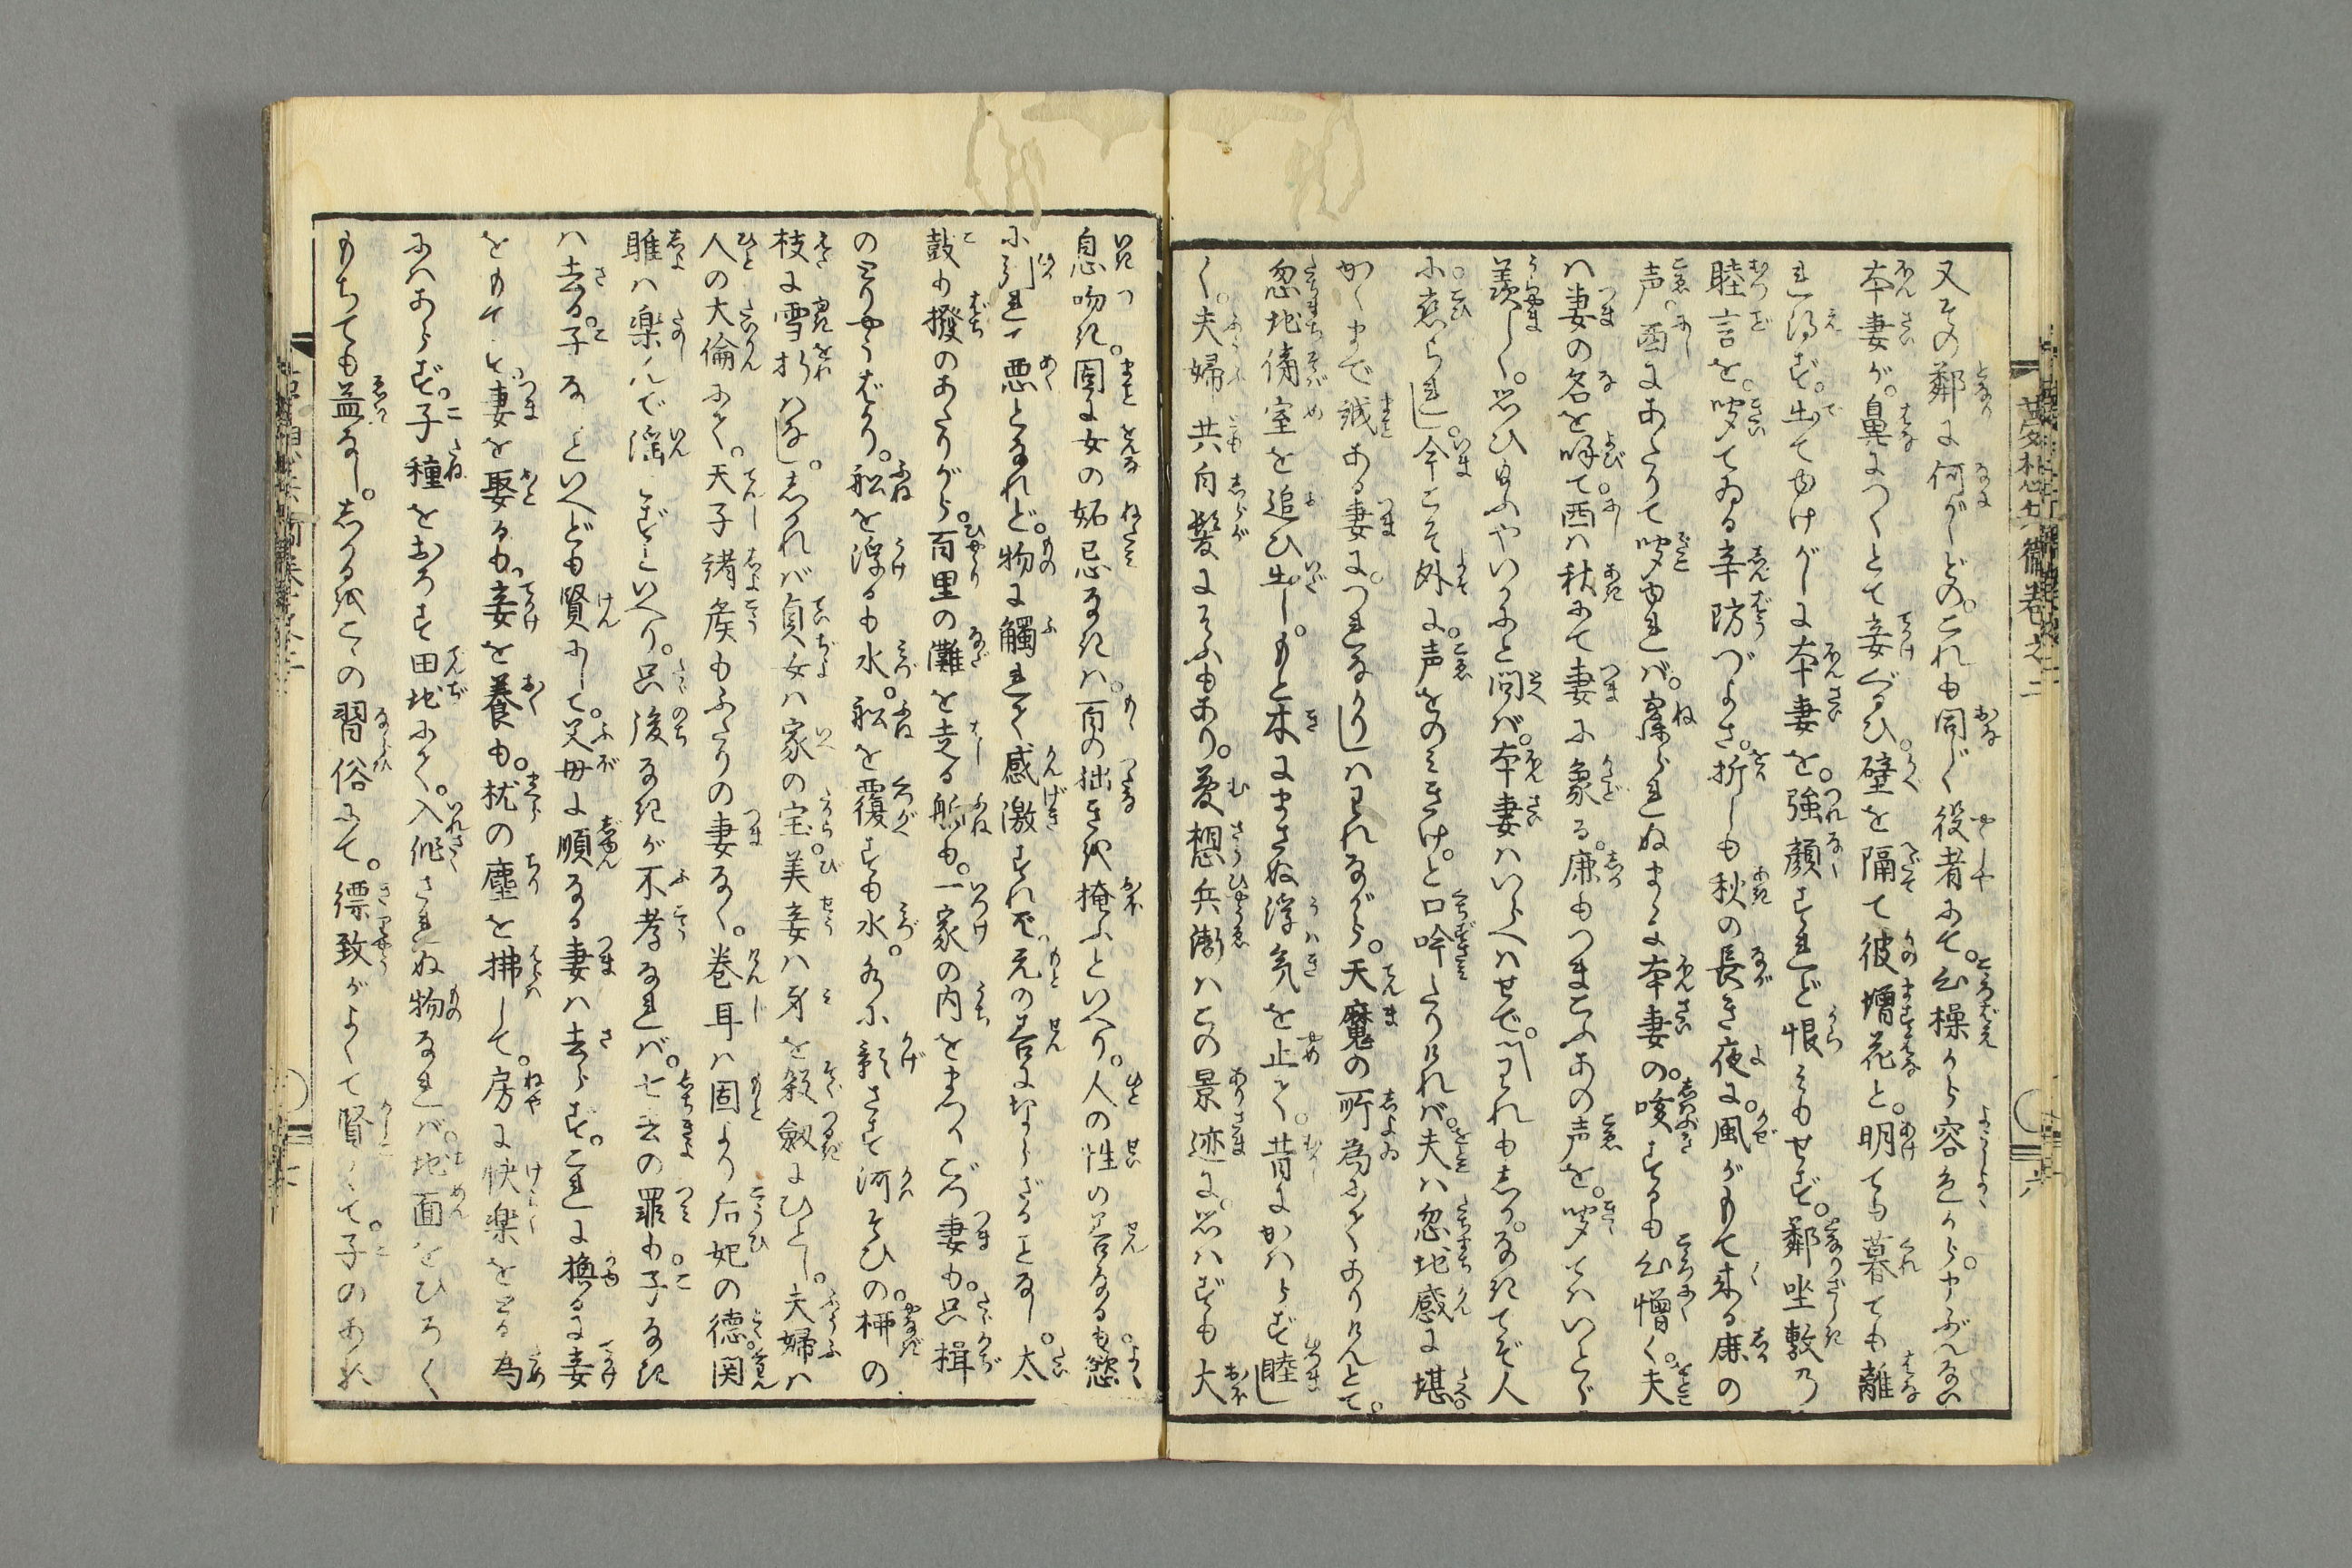 又その鄰に何がしどの。これも同じく役者にて。心操から容色から。申ぶんない
本妻が。鼻につくとて妾ぐるひ。壁を隔て彼増花と。明ても暮ても離
れ得ず。出てゆけがしに本妻を。強顔すれど恨みもせず。鄰坐敷乃
睦言を。聞てゐる辛防づよさ。折しも秋の長き夜に。風がもて来る鹿の
声。西にあたりて聞ゆれば。寐られぬまゝに本妻の。咳するも心憎く。夫
は妻の名を呼て西は秋にて妻に象る。鹿もつまこふあの声を。聞てはいとゞ
羨しく。思ひ給ふやいかにと問ば。本妻はいらへはせで。われもしか。なきてぞ人
に恋られし。今こそ外に。声をのみきけ。と口吟たりければ。夫は忽地感に堪。
かくまで誠ある妻に。つれなかりしはわれながら。天魔の所為にてありけんとて。
忽地傍室を追ひ出し。もと木にまさぬ浮気を止て。昔にかはらず睦し
く。夫婦共白髪にそふもあり。夢想兵衛はこの景迹に。思はずも大
息吻き。固に女の妬忌なきは。面の拙きを掩ふといへり。人の性の善なるも。慾
に引れて悪となれど。物に觸れて感激すれば。元の善にならざることなし。太
鼓も撥のあたりから。百里の灘を走る船も。一家の内をまつごつ妻も。只楫
のとりやうばかり。船を浮るも水。船を覆すも水。水に影さす河そひの。柳の
枝に雪折はなし。しかれば貞女は家の宝。美妾は身を殺剱にひとし。夫婦は
人の大倫にて。天子諸侯もふたりの妻なく。巻耳は固より后妃の徳。関
雎は楽んで淫せずといへり。只後なきが不孝なれば。七去の罪も子なき
は去る。子なしといへども賢にして。父母に順なる妻は去らず。これに換るに妾
をもてす。妻を娶るも。妾を養も。枕の塵を拂して。房に快楽をとる為
にはあらず。子種をおろす田地にて。入作されぬ物なれば。地面をひろく
もちても益なし。しかるをこの習俗にて。縹致がよくて賢くて。子のあれ
夢想兵衛巻之二
六